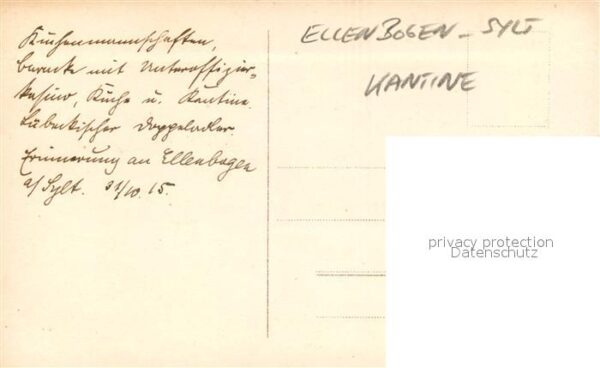 Küchenmannschaften,
baracke mit Unteroffizier-
kasino, Küche u. Kantine.
Lübeckischer Doppeladler.
Erinnerung an Ellenbogen
a/ Sylt. 31/10. 15.
ELLENBOGEN - SYLT
KANTINE
privacy protection
Datenschutz